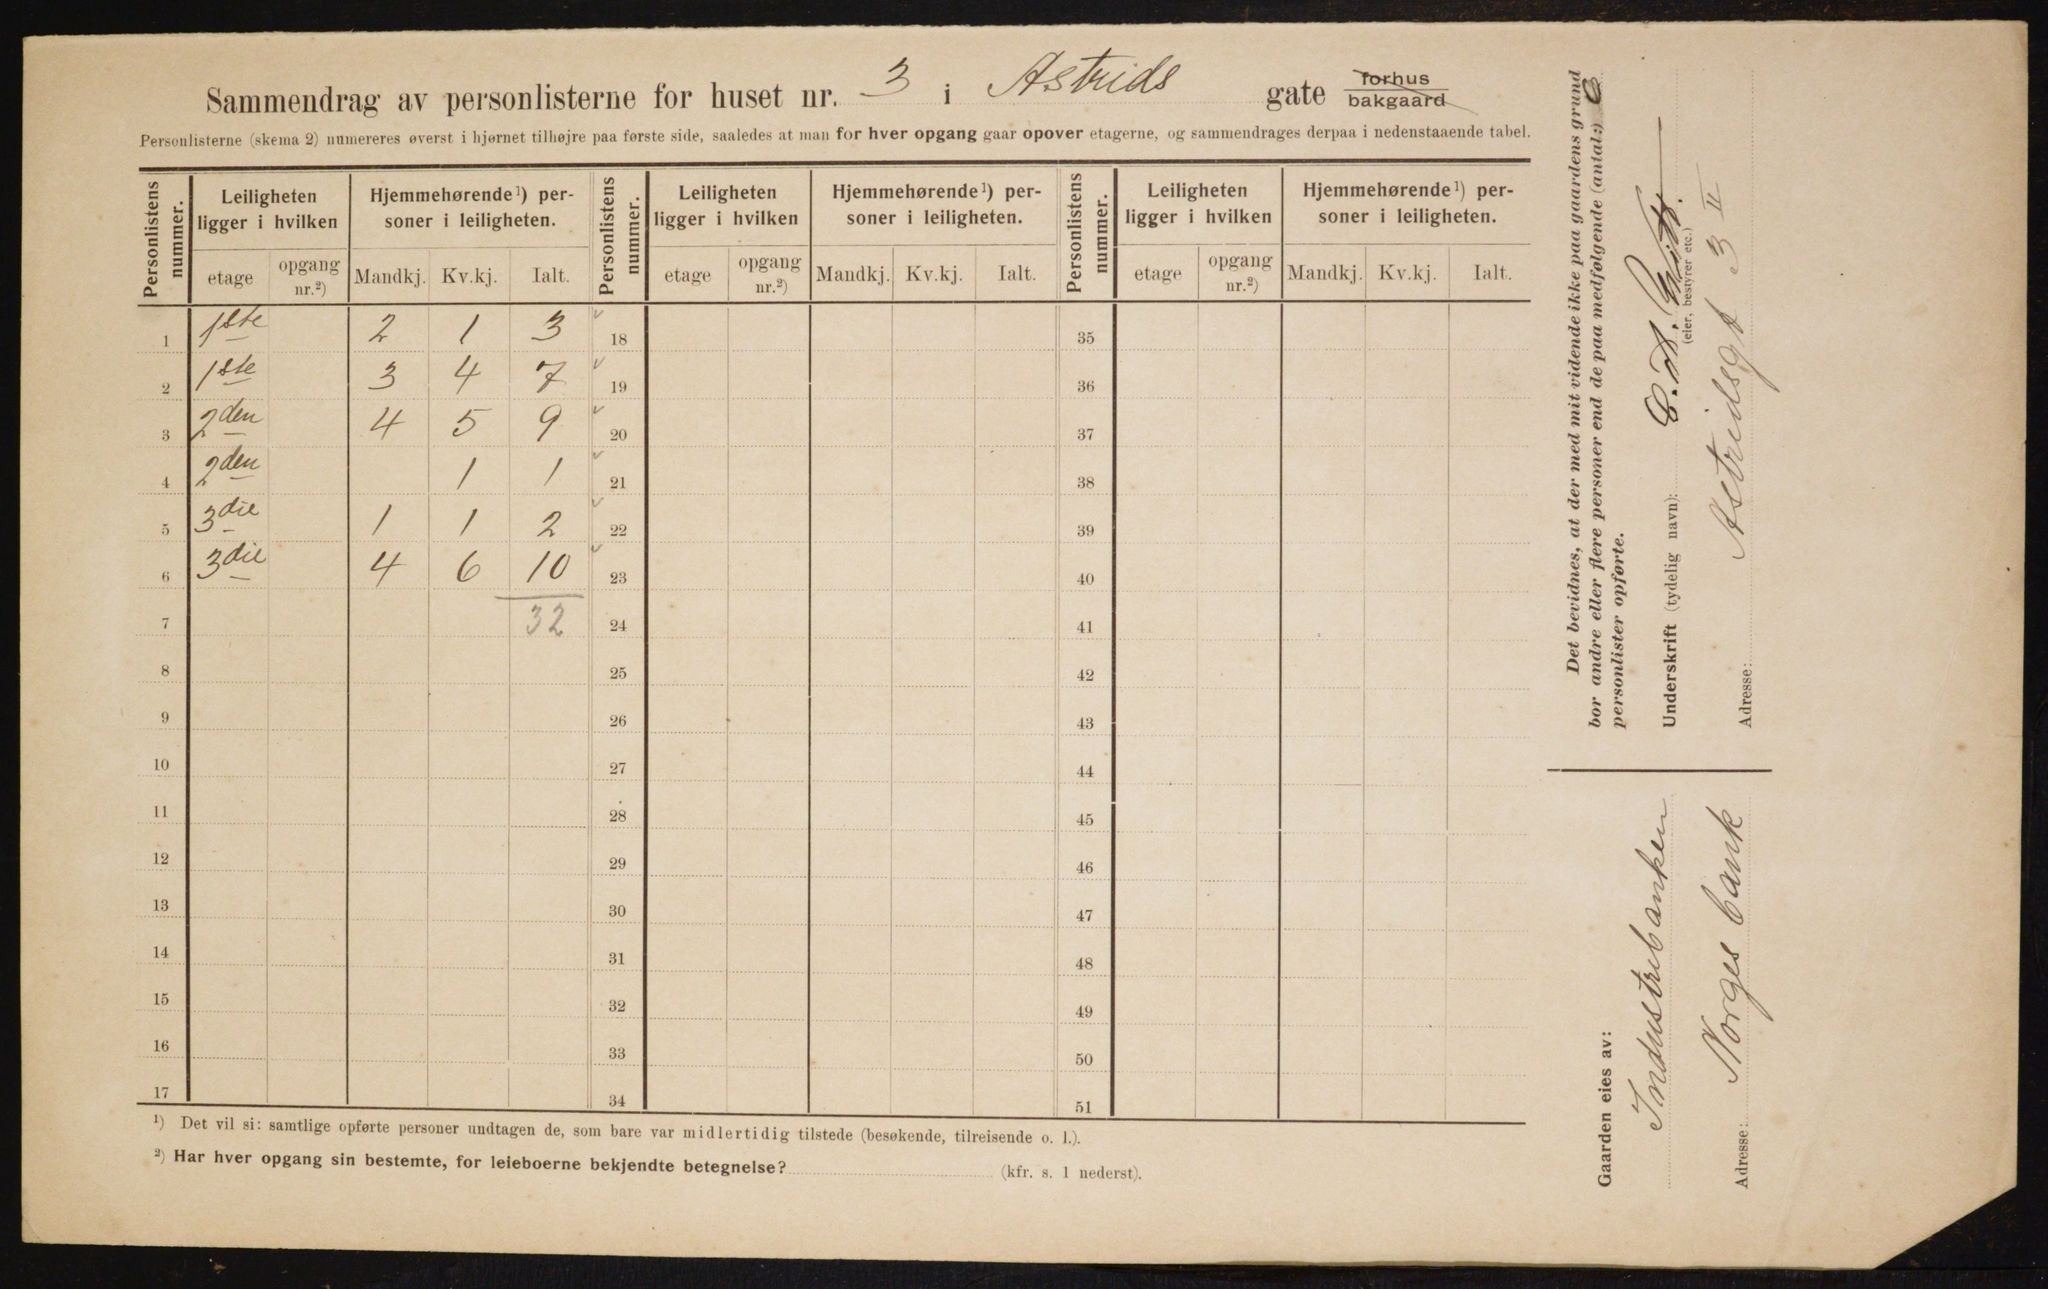 Sammendrag av personlisterne for huset nr. 3 i Astrids gate forhus bakgaard
Personlisterne (skema 2) numereres øverst i hjørnet tilhøjre paa første side, saaledes at man for hver opgang gaar opover etagerne, og sammendrages derpaa i nedenstaaende tabel.
Personlistens nummer. Leiligheten ligger i hvilken Hjemmehørende¹) personer i leiligheten. Personlistens nummer. Leiligheten ligger i hvilken Hjemmehørende¹) personer i leiligheten. Personlistens nummer. Leiligheten ligger i hvilken Hjemmehørende¹) personer i leiligheten.
etage opgang nr.²) Mandkj. Kv.kj. Ialt. etage opgang nr.²) Mandkj. Kv.kj. Ialt. etage opgang nr.²) Mandkj. Kv.kj. Ialt.
1 1ste 2 1 3 18 35
2 1ste 3 4 7 19 36
3 2den 4 5 9 20 37
4 2den 1 1 21 38
5 3die 1 1 2 22 39
6 3die 4 6 10 23 40
7 32 24 41
8 25 42
9 26 43
10 27 44
11 28 45
12 29 46
13 30 47
14 31 48
15 32 49
16 33 50
17 34 51
¹) Det vil si: samtlige opførte personer undtagen de, som bare var midlertidig tilstede (besøkende, tilreisende o. l.).
²) Har hver opgang sin bestemte, for leieboerne bekjendte betegnelse? (kfr. s. 1 nederst).
Det bevidnes, at der med mit vidende ikke paa gaardens grund
bor andre eller flere personer end de paa medfølgende (antal:) 6
personlister opførte.
Underskrift (tydelig navn):
(eier, bestyrer etc.)
Adresse: Astridsgt 3 II
Gaarden eies av:
Industribanken
Adresse: Norges bank